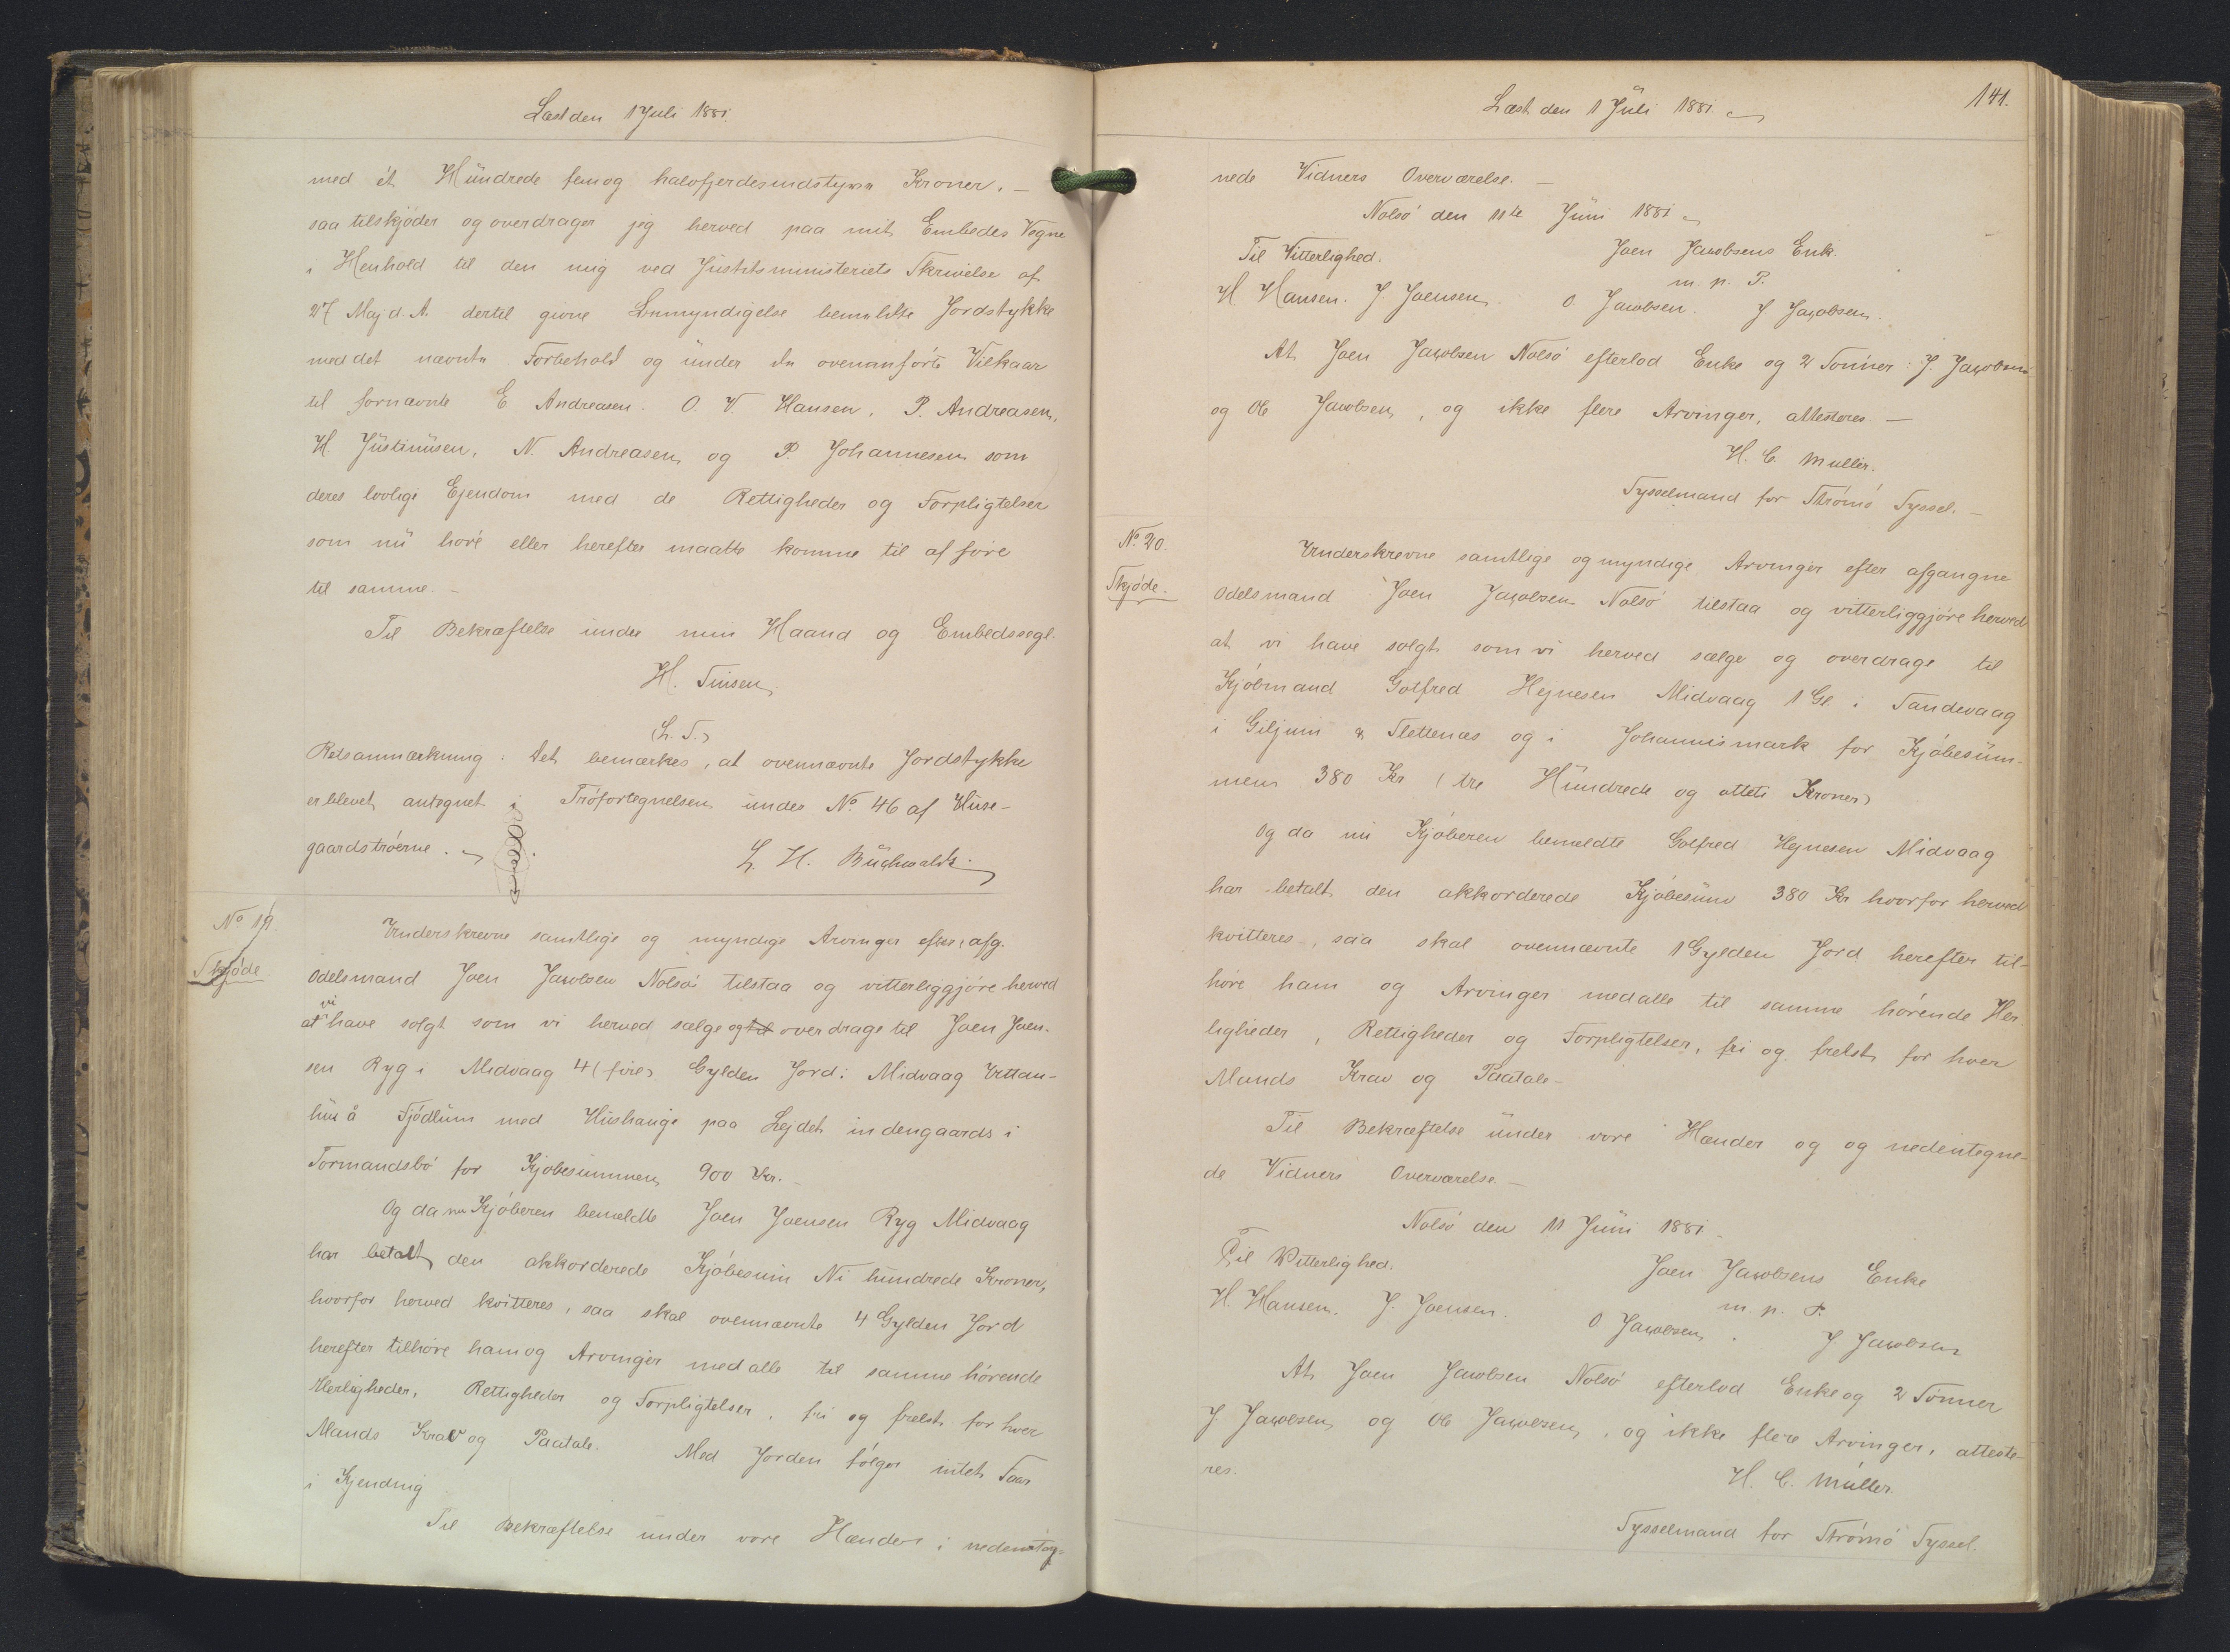 Læst den 1 Juli 1881.
med ét Hundrede femog halvfjerdesindstyve Kroner. —
saa tilskjøder og overdrager jeg herved paa mit Embedes Vegne
i Henhold til den mig ved Justitsministeriets Skrivelse af
27 Maj d. A. dertil givne Bemyndigelse bemeldte Jordstykke
med det nævnte Forbehold og under de ovenanførte Vilkaar
til fornævnte E Andreasen. O. V. Hansen, P. Andreasen,
H. Justinusen, N. Andreasen og P. Johannesen som
deres lovlige Ejendom med de Rettigheder og Forpligtelser
som nu høre eller herefter maatte komme til at høre
til samme. —
Til Bekræftelse under min Haand og Embedssegl.
H. Finsen
(L. S.)
Retsanmærkning: Det bemærkes, at ovennævnte Jordstykke
er blevet antegnet i Trøfortegnelsen under No. 46 af Huse-
gaardstrøerne.
L. H. Buchwaldt.
No 19.
Skjøde
Underskrevne samtlige og myndige Arvinger efter afg.
Odelsmand Joen Jacobsen Nolsø tilstaa og vitterliggjøre herved
at vi have solgt som vi herved sælge og til overdrage til Joen Joen-
sen Ryg i Midvaag 4 (fire) Gylden Jord i Midvaag Uttan-
hus å Fjødlum med Hushauge paa Lejdet indengaards i
Tormandsbø for Kjøbesummen 900 Kr. —
Og da nu Kjøberen bemeldte Joen Joensen Ryg Midvaag
har betalt den akkorderede Kjøbesum Ni hundrede Kroner,
hvorfor herved kvitteres, saa skal ovennævnte 4 Gylden Jord
herefter tilhøre ham og Arvinger med alle til samme hørende
Herligheder, Rettigheder og Forpligtelser, fri og frelst for hver
Mands Krav og Paatale. Med Jorden følger intet Faar
i Kjendnig
Til Bekræftelse under vore Hænder i nedenteg-
Læst den 1 Juli 1881.
141.
nede Vidners Overværelse. —
Nolsø den 11te Juni 1881
Til Vitterlighed.
Joen Jacobsens Enk.
m. p. P.
H Hansen. J. Joensen. O. Jacobsen. J Jacobsen.
At Joen Jacobsen Nolsø efterlod Enke og 2 Sønner: J. Jacobsen
og Ole Jacobsen, og ikke flere Arvinger, attesteres. —
H. C. Müller.
Sysselmand for Strømø Syssel. —
No. 20.
Skjøde.
Underskrevne samtlige og myndige Arvinger efter afgangne
Odelsmand Joen Jacobsen Nolsø tilstaa og vitterliggjøre herved
at vi have solgt som vi herved sælge og overdrage til
Kjøbmand Golfred Hejnesen Midvaag 1 Gl. i Sandevaag
i Giljum & Slettenæs og i Johannismark for Kjøbesum-
men 380 Kr (tre Hundrede og otteti Kroner)
Og da nu Kjøberen bemeldte Golfred Hejnesen Midvaag
har betalt den akkorderede Kjøbesum 380 Kr hvorfor herved
kvitteres, saa skal ovennævnte 1 Gylden Jord herefter til-
høre ham og Arvinger med alle til samme hørende Her-
ligheder, Rettigheder og Forpligtelser, fri og frelst for hver
Mands Krav og Paatale —
Til Bekræftelse under vore Hænder og og nedentegne-
de Vidners Overværelse. —
Nolsø den 11 Juni 1881.
Til Vitterlighed.
Joen Jacobsens Enke
m. p. P.
H. Hansen. J. Joensen. O. Jacobsen. J. Jacobsen
At Joen Jacobsen Nolsø efterlod Enke og 2 Sønner
J Jacobsen og Ole Jacobsen, og ikke flere Arvinger, atteste-
res.
H. C. Müller.
Sysselmand for Strømø Syssel.